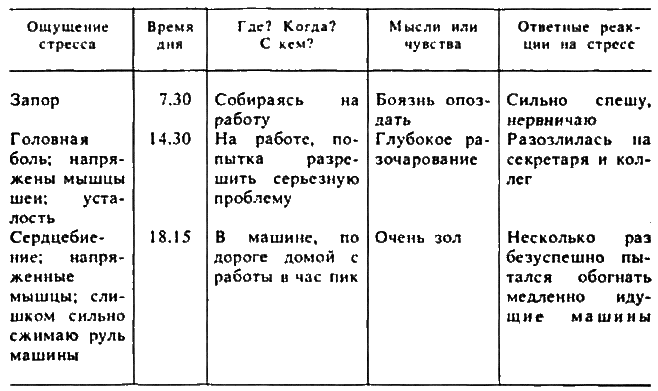 Ощущение
стресса
Время
дня
Где? Когда?
С кем?
Мысли или
чувства
Ответные реак-
ции на стресс
Запор
7.30
Собираясь на
работу
Боязнь опоз-
дать
Сильно спешу,
нервничаю
Головная
боль; напря-
жены мышцы
шеи; уста-
лость
14.30
На работе, по-
пытка разре-
шить серьезную
проблему
Глубокое ра-
зочарование
Разозлилась на
секретаря и кол-
лег
Сердцебие-
ние; напря-
женные
мышцы; сли-
шком сильно
сжимаю руль
машины
18.15
В машине, по
дороге домой с
работы в час пик
Очень зол
Несколько раз
безуспешно пы-
тался обогнать
медленно иду-
щие машины